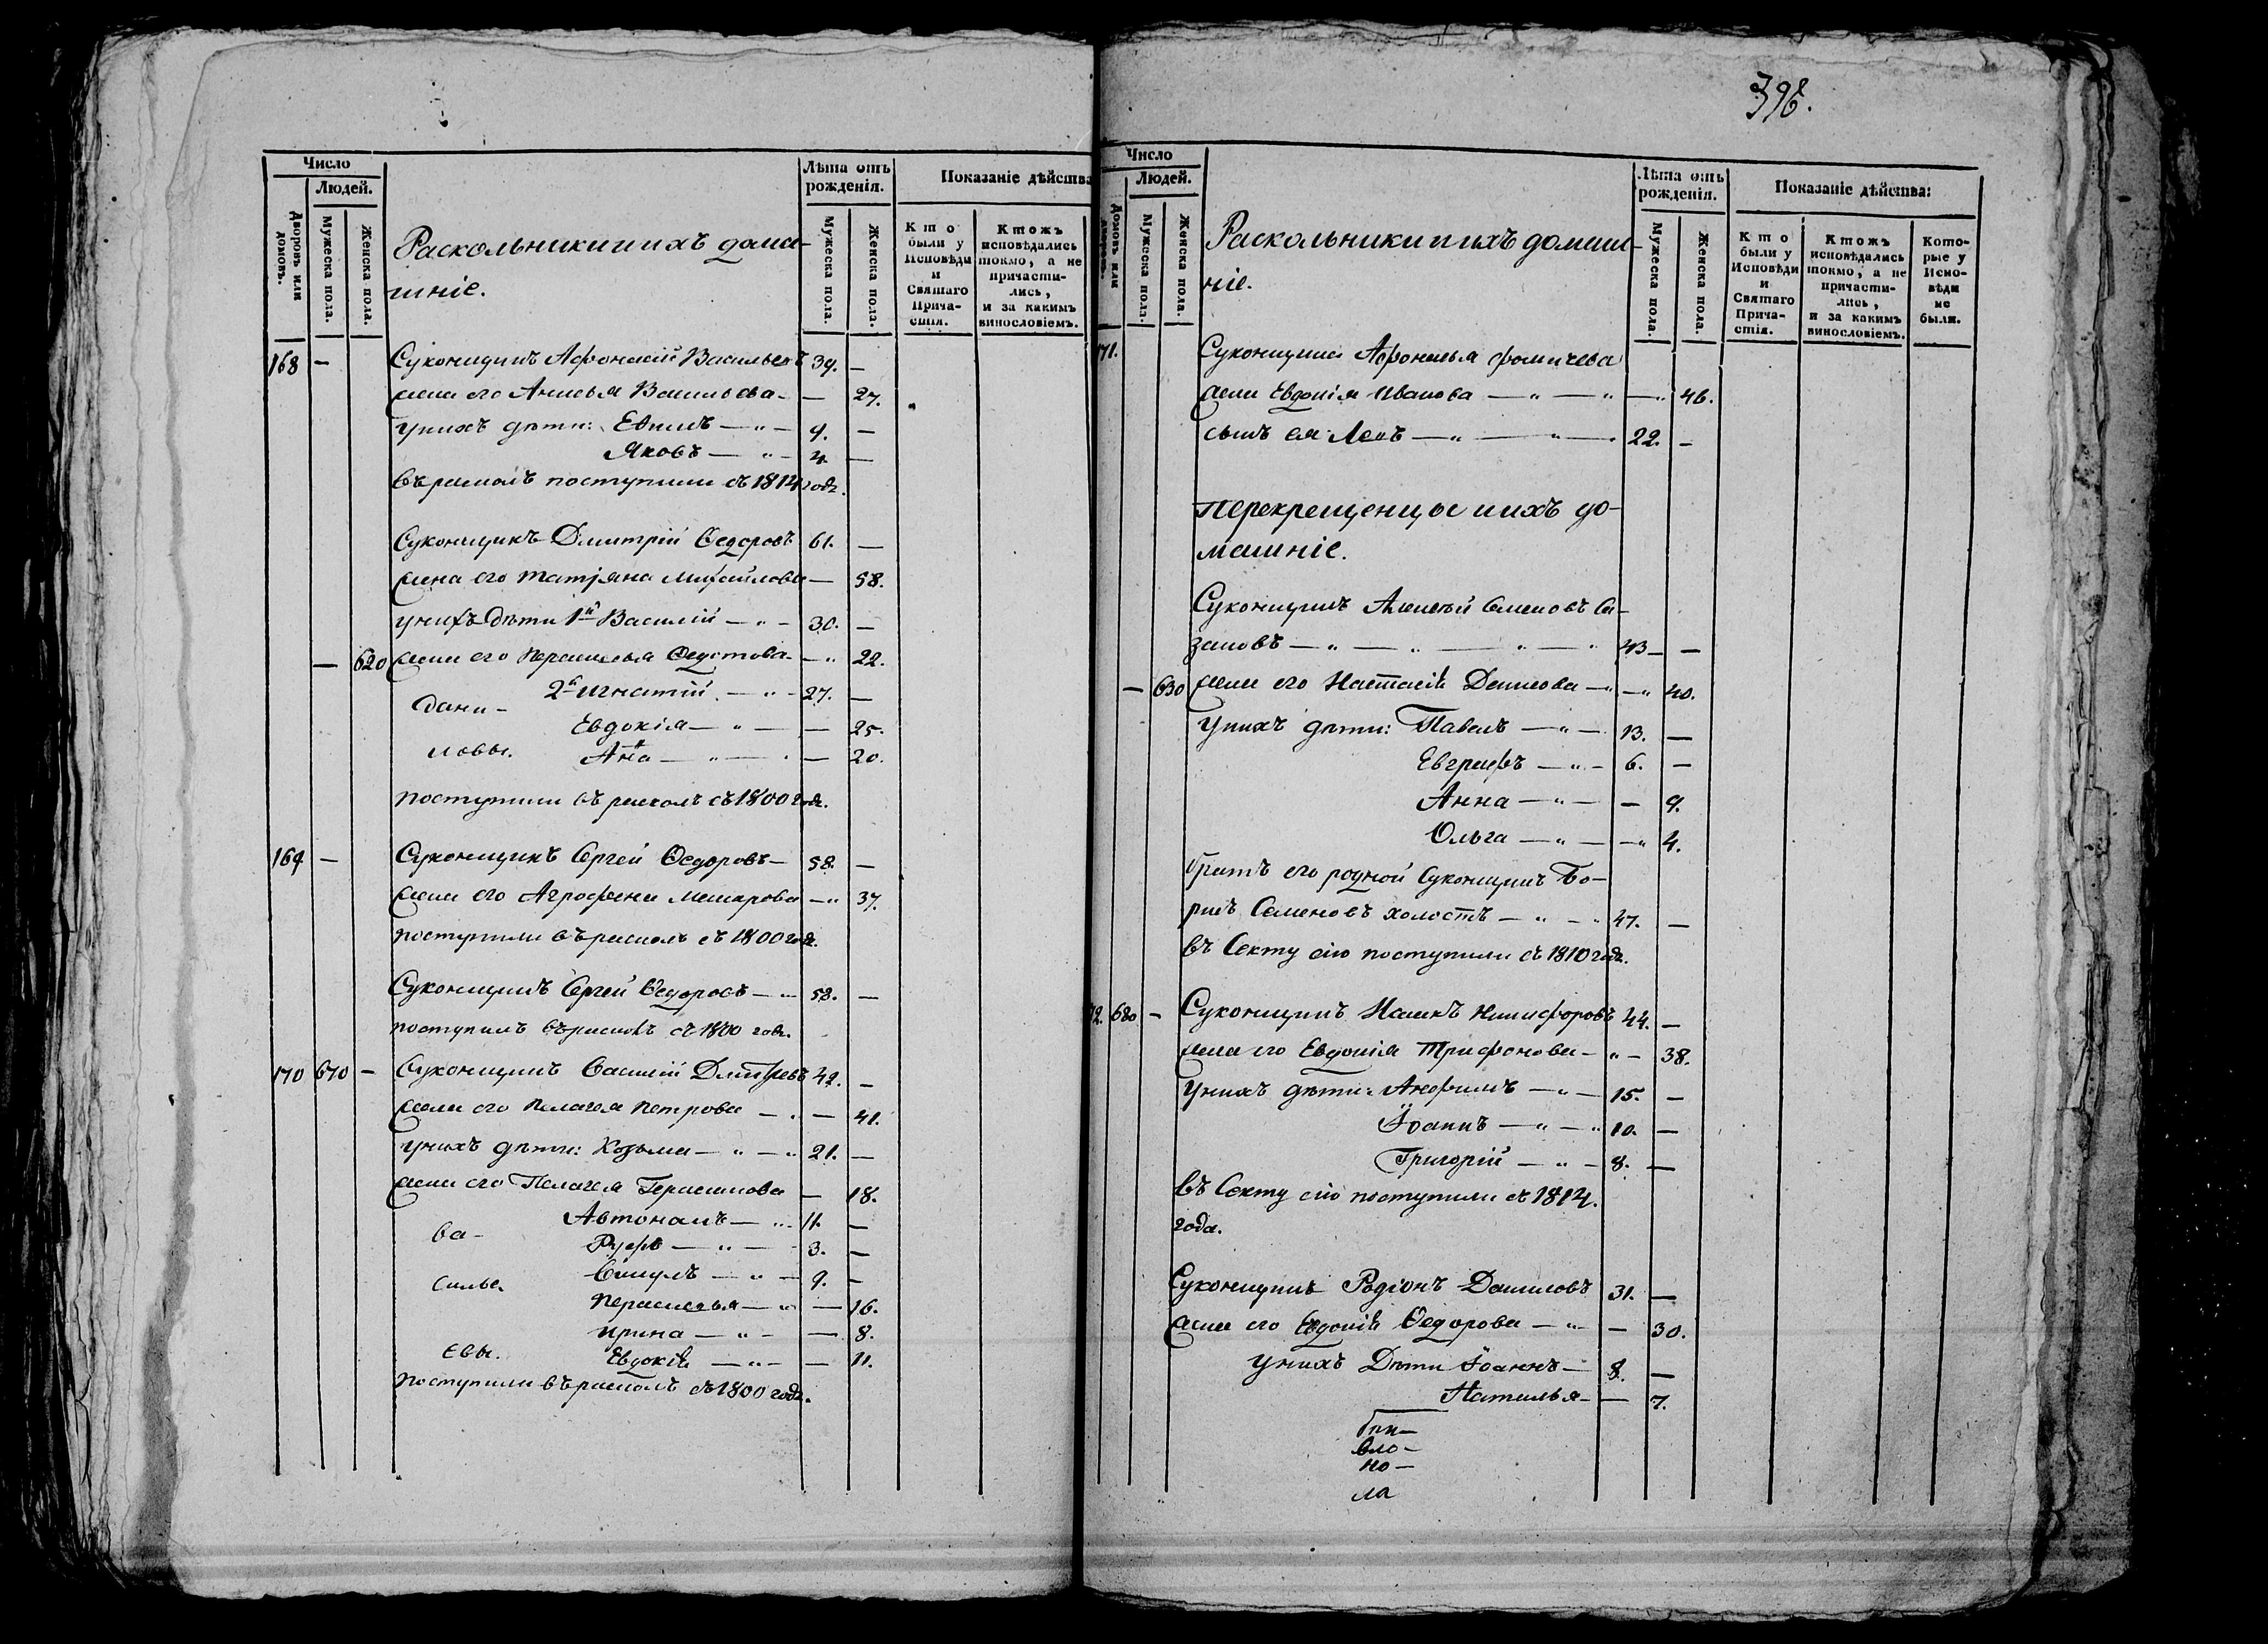 398.
Число
Людей.
Дворовъ или домовъ.
Мужеска пола.
Женска пола.
Раскольники и ихъ дома-
шніе.
Лѣта отъ рожденія.
Мужеска пола.
Женска пола.
Показаніе дѣйства
Кто были у Исповѣди и Святаго Прича-стія.
Ктожъ исповѣдались токмо, а не причасти-лись, и за какимъ винословіемъ.
168 — Суконщикъ Афонасій Васильевъ 39. —
жена его Анисья Васильева — — 27.
у нихъ дѣти: Евплъ — " — 9. —
Яковъ — " — 4. —
въ расколъ поступили съ 1814 года.
Суконщикъ Дмитрій Ѳедоровъ 61. —
жена его Татьяна Михайлова — 58.
у нихъ дѣти 1й Василій — " — 30. —
— 620 жена его Парасковья Ѳедотова — " 22.
2й Игнатій — " — 27. —
Дани-
Евдокія — " — — 25.
ловы.
Анна — " — — 20.
поступили въ расколъ съ 1800 года.
169 — Суконщикъ Сергей Ѳедоровъ — 58. —
жена его Аграфена Макарова — " 37.
поступили въ расколъ съ 1800 года.
Суконщикъ Сергей Ѳедоровъ — " 58. —
поступилъ въ расколъ съ 1800 года.
170 670 — Суконщикъ Василій Дмитревъ 42. —
жена его Пелагея Петрова — " — 41.
у нихъ дѣти: Козьма — " — " 21. —
жена его Пелагея Герасимова — 18.
Автономъ — " 11. —
Ва-
Руфъ — " — 3. —
Викулъ — " — 9. —
силье-
Парасковья — " — 16.
Ирина — " — — 8.
евы.
Евдокія — " — — 11.
поступили въ расколъ съ 1800 года.
Число
Людей.
Домовъ или
Мужеска пола.
Женска пола.
Раскольники и ихъ домаш-
ніе.
Лѣта отъ рожденія.
Мужеска пола.
Женска пола.
Показаніе дѣйства:
Кто были у Исповѣди и Святаго Прича-стія.
Ктожъ исповѣдались токмо, а не причасти-лись, и за какимъ винословіемъ.
Кото-рые у Испо-вѣди не были.
71. Суконщика Афонасья Фомичева
жена Евдокія Иванова — " — " — " 46.
сынъ ея Левъ — " — " — " 22. —
Перекрещенцы и ихъ до-
машніе.
Суконщикъ Алексѣй Семеновъ Са-
зановъ — " — " — " — " 43 — —
— 630 жена его Настасія Данилова — " — " 40.
У нихъ дѣти: Павелъ — " — 13. —
Евграфъ — " — 6. —
Анна — " — — 9.
Ольга — " — — " 4.
братъ его родной Суконщикъ Бо-
рисъ Семеновъ холостъ — " — " 47. —
въ Секту сію поступили съ 1810 года.
72. 680 — Суконщикъ Исаакъ Никифоровъ 44. —
жена его Евдокія Трифонова — " — 38.
У нихъ дѣти: Анфимъ — " — 15. —
Іоаннъ — " — " 10. —
Григорій — " — 8. —
въ Секту сію поступили съ 1814.
года.
Суконщикъ Родіонъ Даниловъ 31. —
жена его Евдокія Ѳедорова — " — — 30.
У нихъ Дѣти Іоаннъ — 8. —
Наталья — — 7.